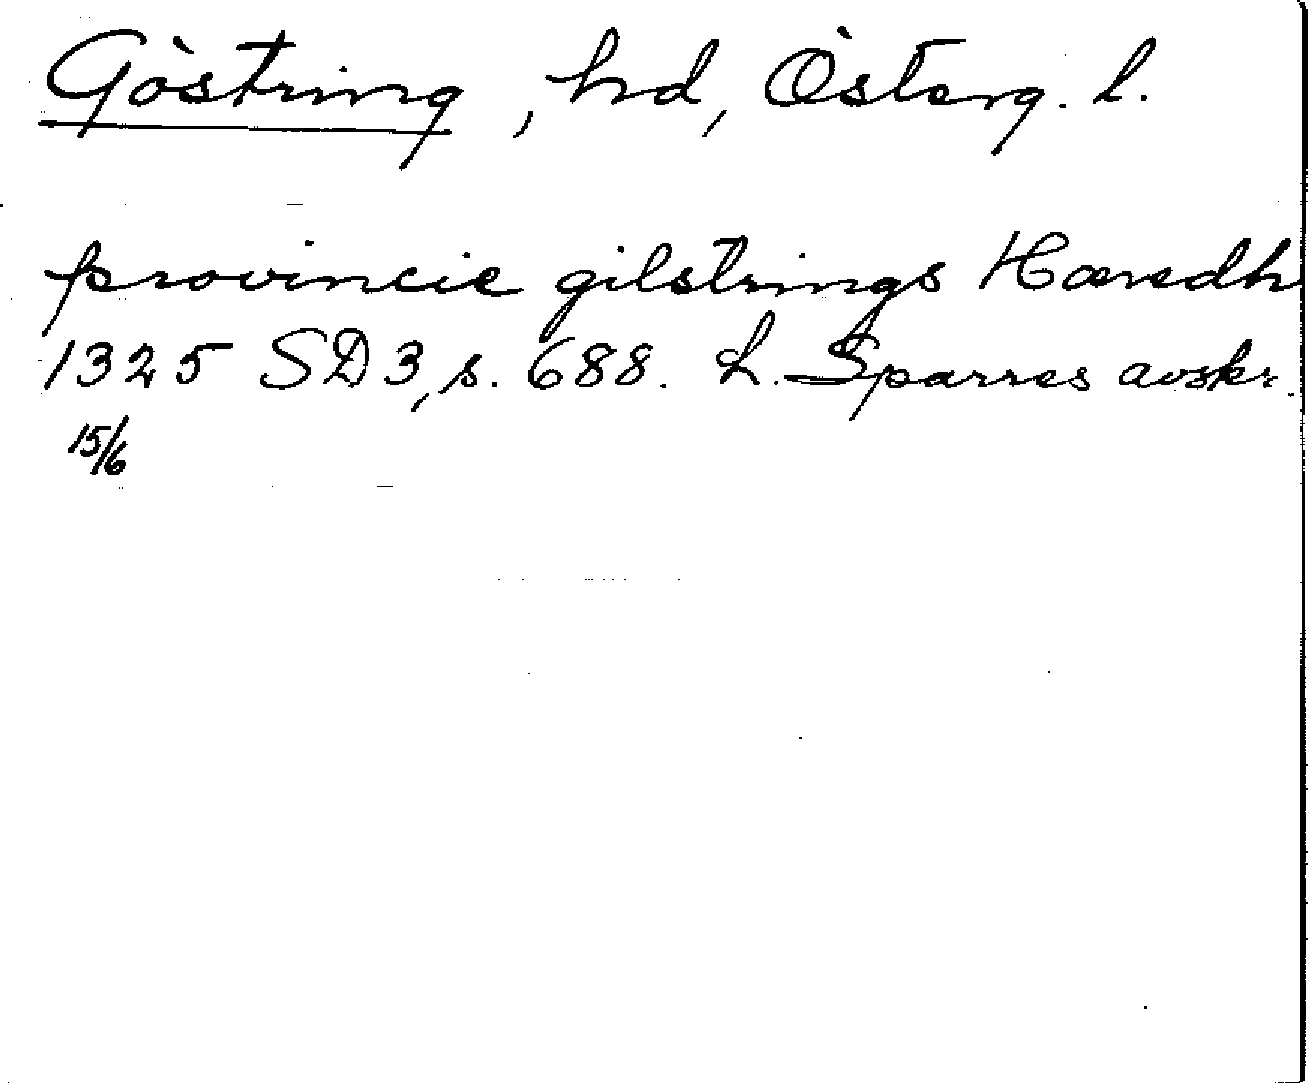 Göstring, hd, Österg. l.
provincie gilstrings Hæredh
1325 SD3, s. 688. L. Sparres avskr.
15/6